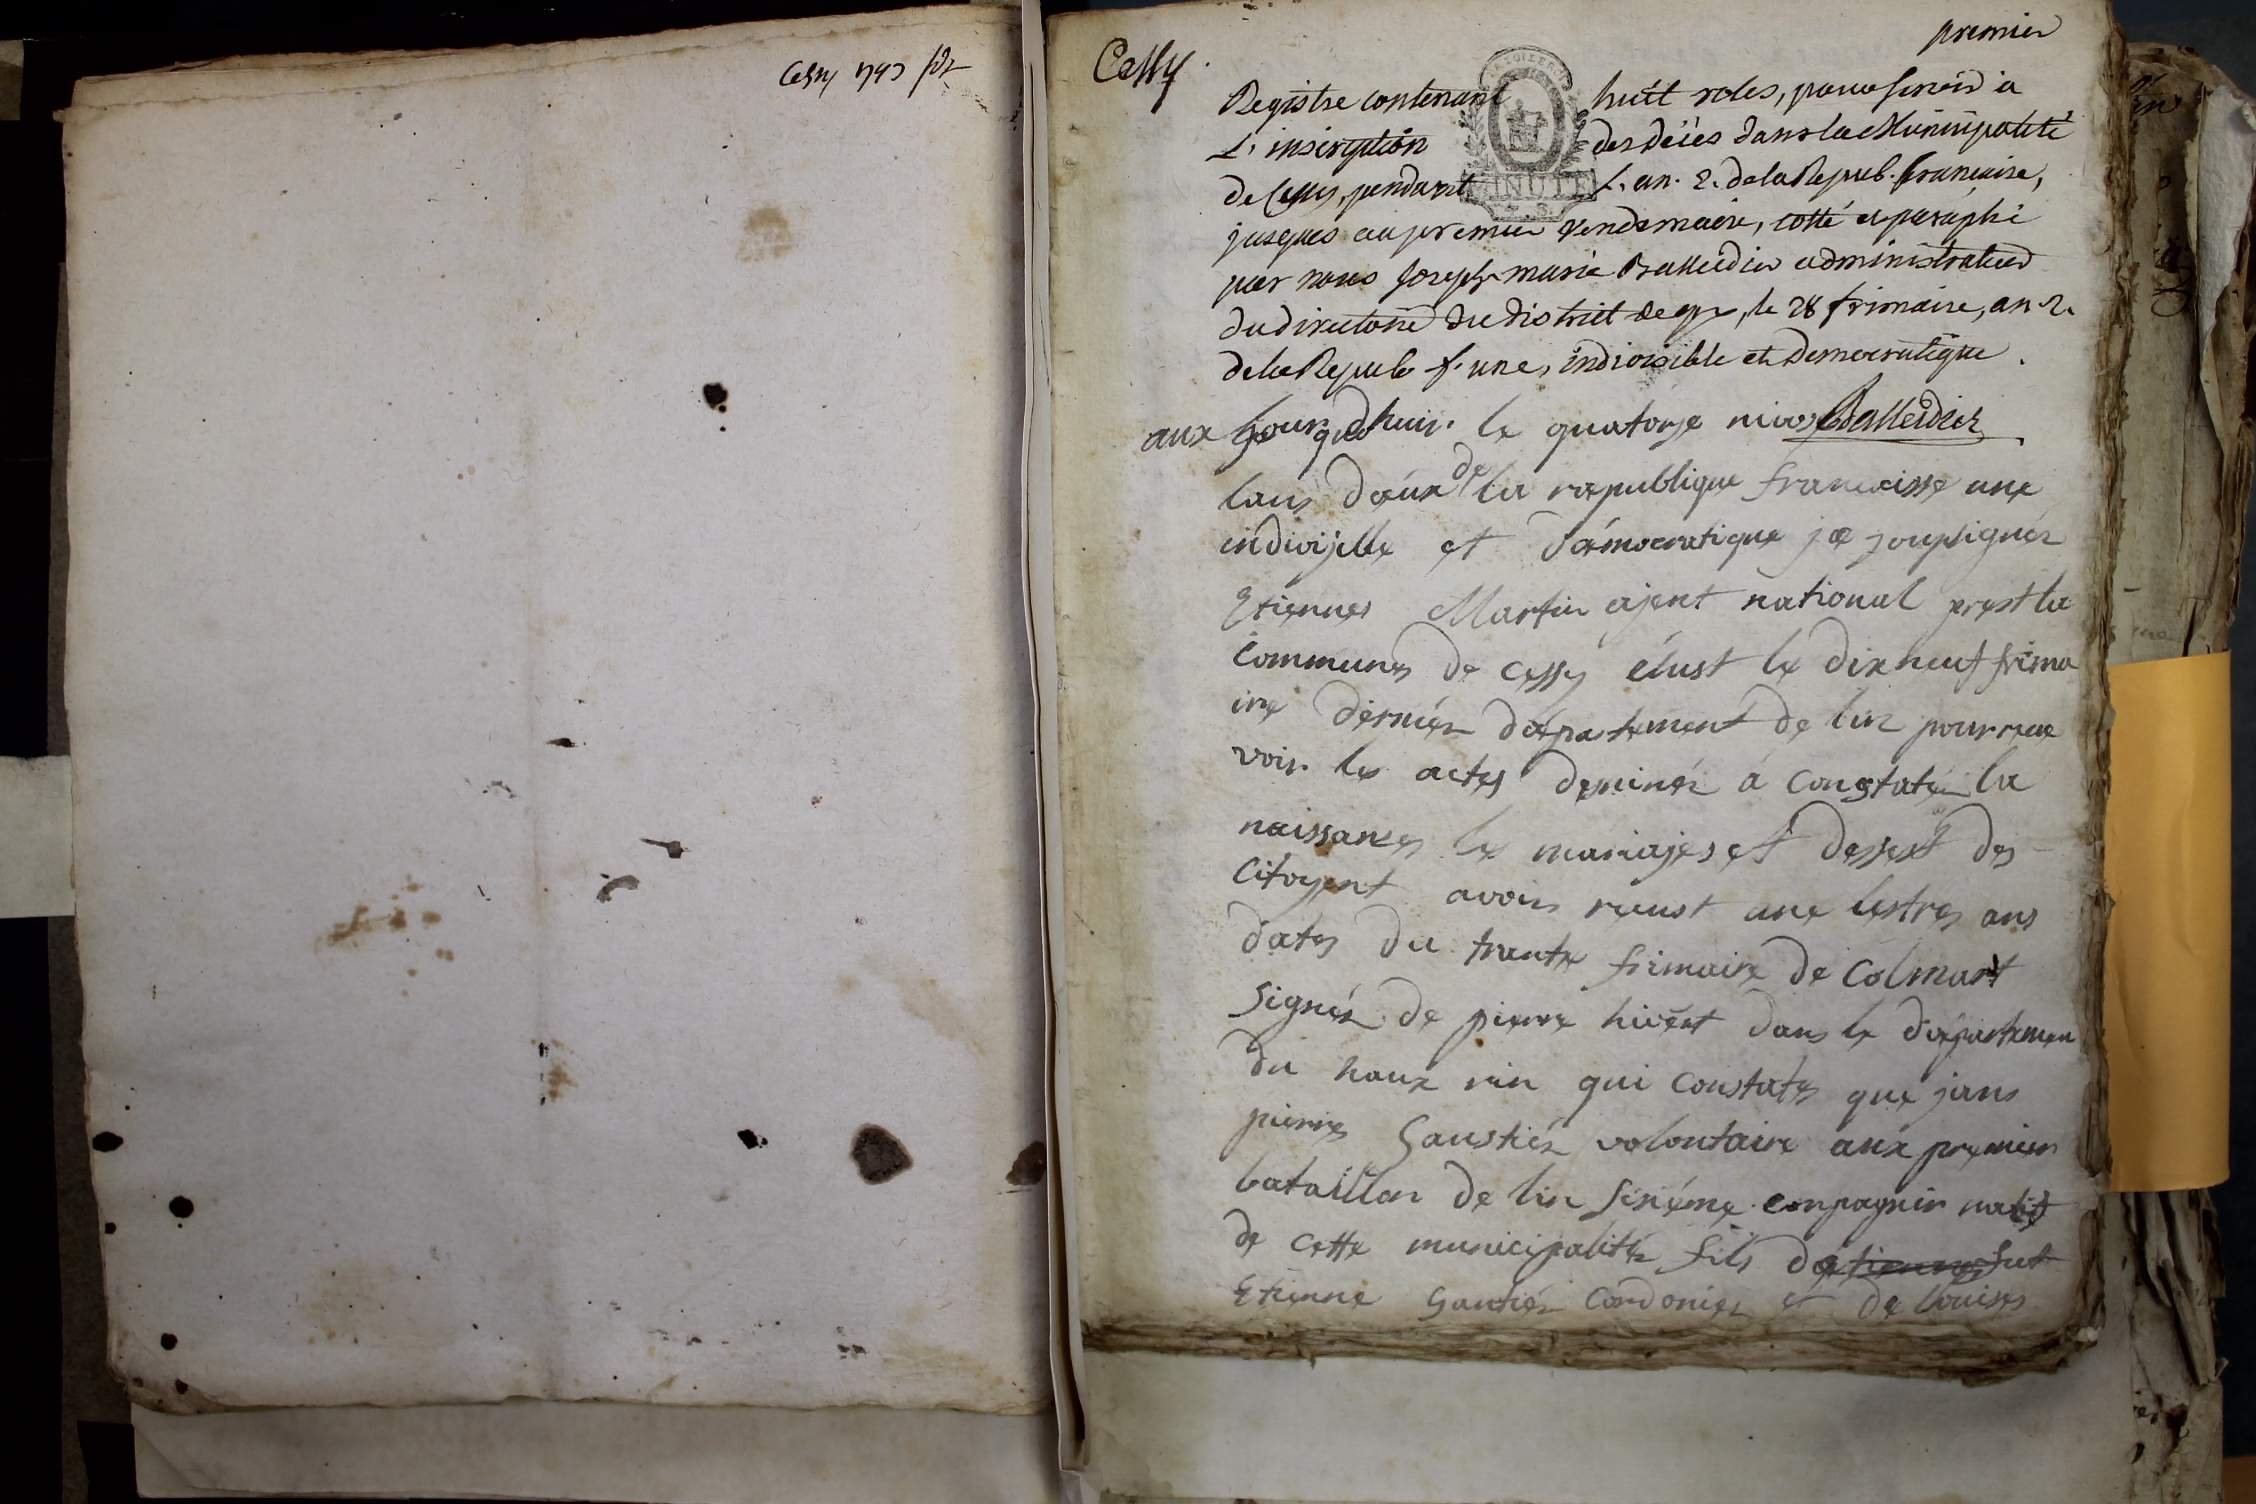 Cessy 1793
premier
Cessy.
Registre contenant huit roles, pour servir à
L'inscription des décès dans la Municipalité
de Cessy, pendant L'an. 2. de la Repub. française,
jusques au premier vendemiaire, cotté et paraphé
par nous Joseph marie Balleidier administrateur
du directoire du district de gex, le 28 frimaire, an 2.
de la Repub. f. une, indivisible et Democratique.
MINUTE
aux Jourdhuis le quatorze nivos Balleidier
lans deúx de la republique francaisse une
indivijble et démocratique je soupsignér
Etiennes Martin ajent national prest la
Communes de Cessy élust le dix neuf frima
ire derniér département de lin pour rece
voir les actes destinér á Constatér la
naissances les mariajes et dessest des
Citoyent avoir recust une lestres ans
dates du trante frimaire de Colmart
Signér de pierre dans le départemen
du haux rin qui Constates que jans
pierres Gaustiér volontaire aux premier
bataillon de lin sixiéme compagnier natif
de cette municipalitér fils de fut
Etienne Gautiér Cordonier et de louises